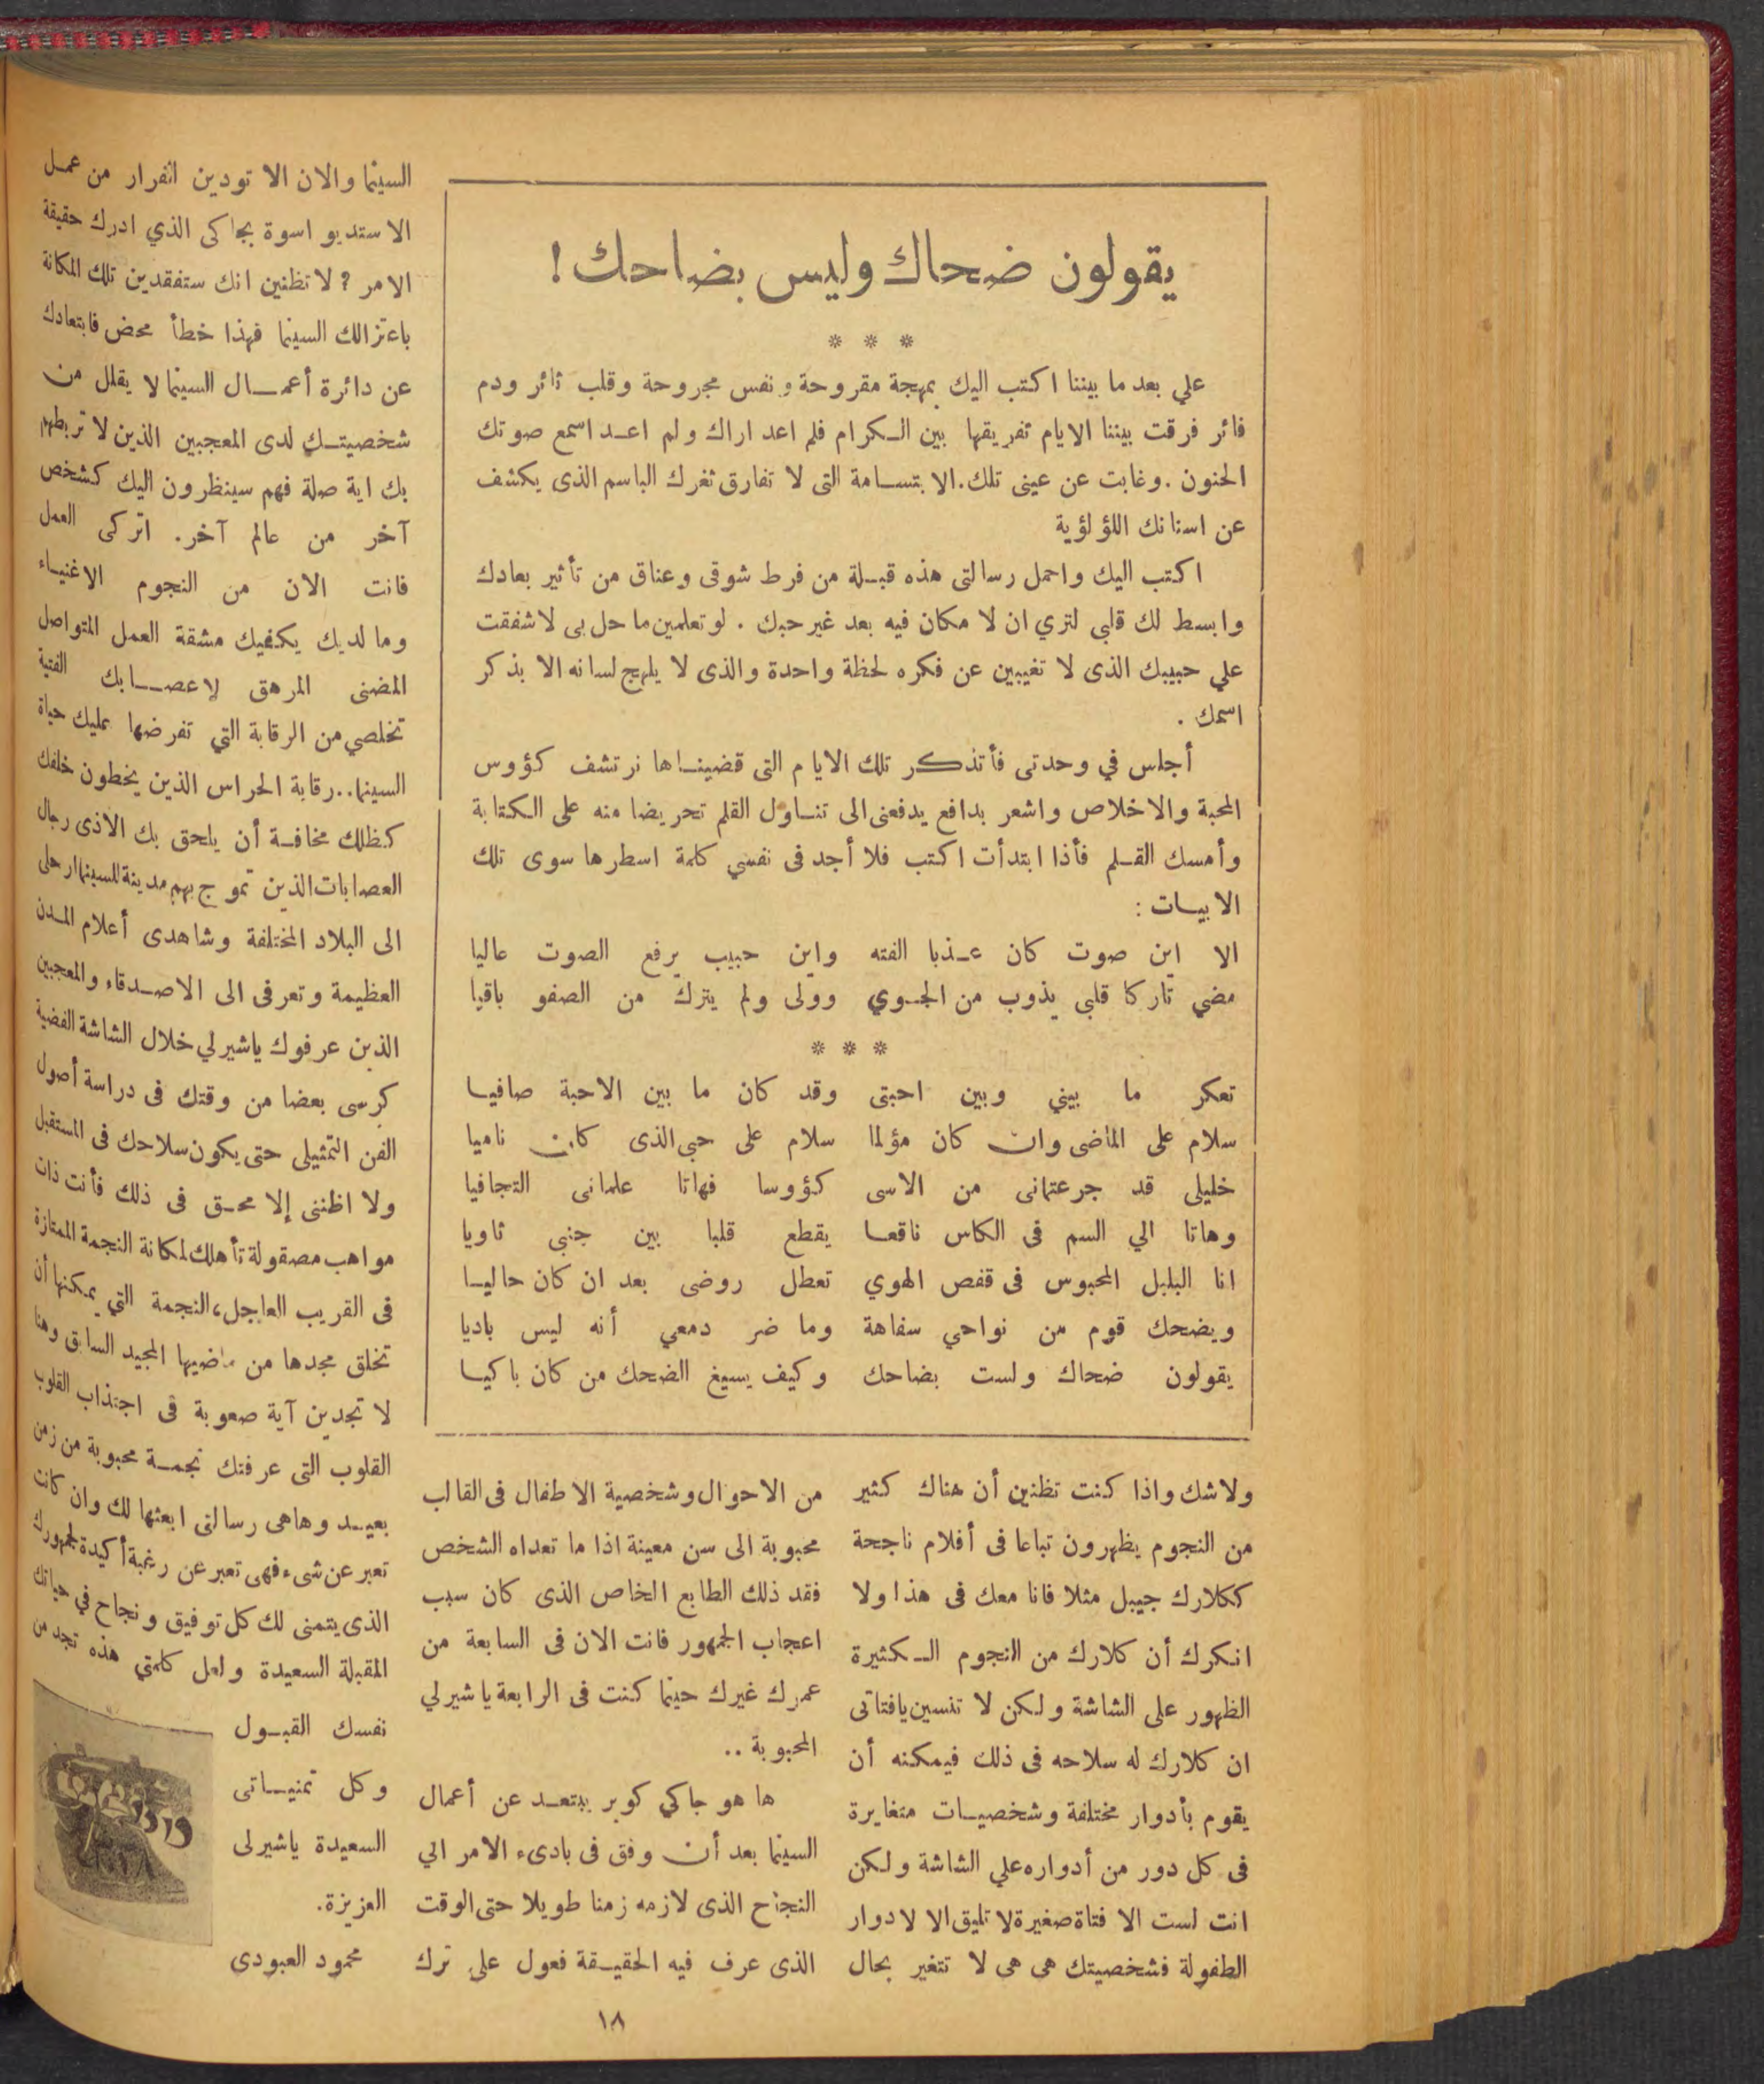 يقولون ضحاك وليس بضاحك !
* * *
علي بعد ما بيننا اكتب اليك بمهجة مقروحة ونفس مجروحة وقلب ثائر ودم
فائر فرقت بيننا الايام تفريقها بين الكرام فلم اعد اراك ولم اعد اسمع صوتك
الحنون . وغابت عن عينى تلك . الابتسامة التى لا تفارق ثغرك الباسم الذى يكشف
عن اسنانك اللؤلؤية
اكتب اليك واحمل رسالتى هذه قبلة من فرط شوقى وعناق من تأثير بعادك
وابسط لك قلبي لتري ان لا مكان فيه بعد غير حبك . لو تعلمين ما حل بى لاشفقت
علي حبيبك الذى لا تغيبين عن فكره لحظة واحدة والذى لا يلهج لسانه الا بذكر
اسمك .
أجلس في وحدتى فأتذكر تلك الايام التى قضيناها نرتشف كؤوس
المحبة والاخلاص واشعر بدافع يدفعنى الى تناول القلم تحريضا منه على الكتابة
وأمسك القلم فأذا ابتدأت اكتب فلا أجد فى نفسي كلمة اسطرها سوى تلك
الابيات :
الا اين صوت كان عذبا الفته واين حبيب يرفع الصوت عاليا
مضي تاركا قلبى يذوب من الجوي وولى ولم يترك من الصفو باقيا
* * *
تعكر ما بيني وبين احبتى وقد كان ما بين الاحبة صافيا
سلام على الماضى وان كان مؤلما سلام على حبى الذى كان ناميا
خليلى قد جرعتمانى من الاسى كؤوسا فهاتا علمانى التجافيا
وهاتا الي السم فى الكاس ناقعا يقطع قلبا بين جنبى ثاويا
انا البلبل المحبوس فى قفص الهوي تعطل روضى بعد ان كان حاليا
ويضحك قوم من نواحي سفاهة وما ضر دمعي أنه ليس باديا
يقولون ضحاك ولست بضاحك وكيف يسيغ الضحك من كان باكيا
ولاشك واذا كنت تظنين أن هناك كثير
من النجوم يظهرون تباعا فى أفلام ناجحة
ككلارك جيبل مثلا فانا معك فى هذا ولا
انكرك أن كلارك من النجوم الكثيرة
الظهور على الشاشة ولكن لا تنسين يافتاتى
ان كلارك له سلاحه فى ذلك فيمكنه أن
يقوم بأدوار مختلفة وشخصيات متغايرة
فى كل دور من أدواره علي الشاشة ولكن
انت لست الا فتاة صغيرة لا تليق الا لادوار
الطفولة فشخصيتك هى هى لا تتغير بحال
من الاحوال وشخصية الاطفال فى القالب
محبوبة الى سن معينة اذا ما تعداه الشخص
فقد ذلك الطابع الخاص الذى كان سبب
اعجاب الجمهور فانت الان فى السابعة من
عمرك غيرك حينما كنت فى الرابعة ياشيرلي
المحبوبة ..
ها هو جاكي كوبر يبتعد عن أعمال
السينما بعد أن وفق فى بادىء الامر الي
النجاح الذى لازمه زمنا طويلا حتى الوقت
الذى عرف فيه الحقيقة فعول على ترك
السينما والان الا تودين الفرار من عمل
الاستديو اسوة بجاكى الذي ادرك حقيقة
الامر ؟ لا تظنين انك ستفقدين تلك المكانة
باعتزالك السينما فهذا خطأ محض فابتعادك
عن دائرة أعمال السينما لا يقلل من
شخصيتك لدى المعجبين الذين لا تربطهم
بك اية صلة فهم سينظرون اليك كشخص
آخر من عالم آخر. اتركى العمل
فانت الان من النجوم الاغنياء
وما لديك يكفيك مشقة العمل المتواصل
المضنى المرهق لاعصابك الفتية
تخلصي من الرقابة التي تفرضها عليك حياة
السينما .. رقابة الحراس الذين يخطون خلفك
كظلك مخافة أن يلحق بك الاذى رجال
العصابات الذين تموج بهم مدينة السينما ارحلى
الى البلاد المختلفة وشاهدى أعلام المدن
العظيمة وتعرفى الى الاصدقاء والمعجبين
الذين عرفوك ياشيرلي خلال الشاشة الفضية
كرسى بعضا من وقتك فى دراسة أصول
الفن التمثيلى حتى يكون سلاحك فى المستقبل
ولا اظننى إلا محق فى ذلك فأنت ذات
مواهب مصقولة تأهلك لمكانة النجمة الممتازة
فى القريب العاجل، النجمة التي يمكنها أن
تخلق مجدها من ماضيها المجيد السابق وهنا
لا تجدين آية صعوبة فى اجتذاب القلوب
القلوب التى عرفتك نجمة محبوبة من زمن
بعيد وهاهى رسالتى ابعثها لك وان كانت
تعبر عن شىء فهى تعبر عن رغبة أكيدة لجمهورك
الذى يتمنى لك كل توفيق ونجاح في حياتك
المقبلة السعيدة ولعل كلمتي هذه تجد من
نفسك القبول
وكل تمنياتى
السعيدة ياشيرلى
العزيزة.
محمود العبودى
١٨